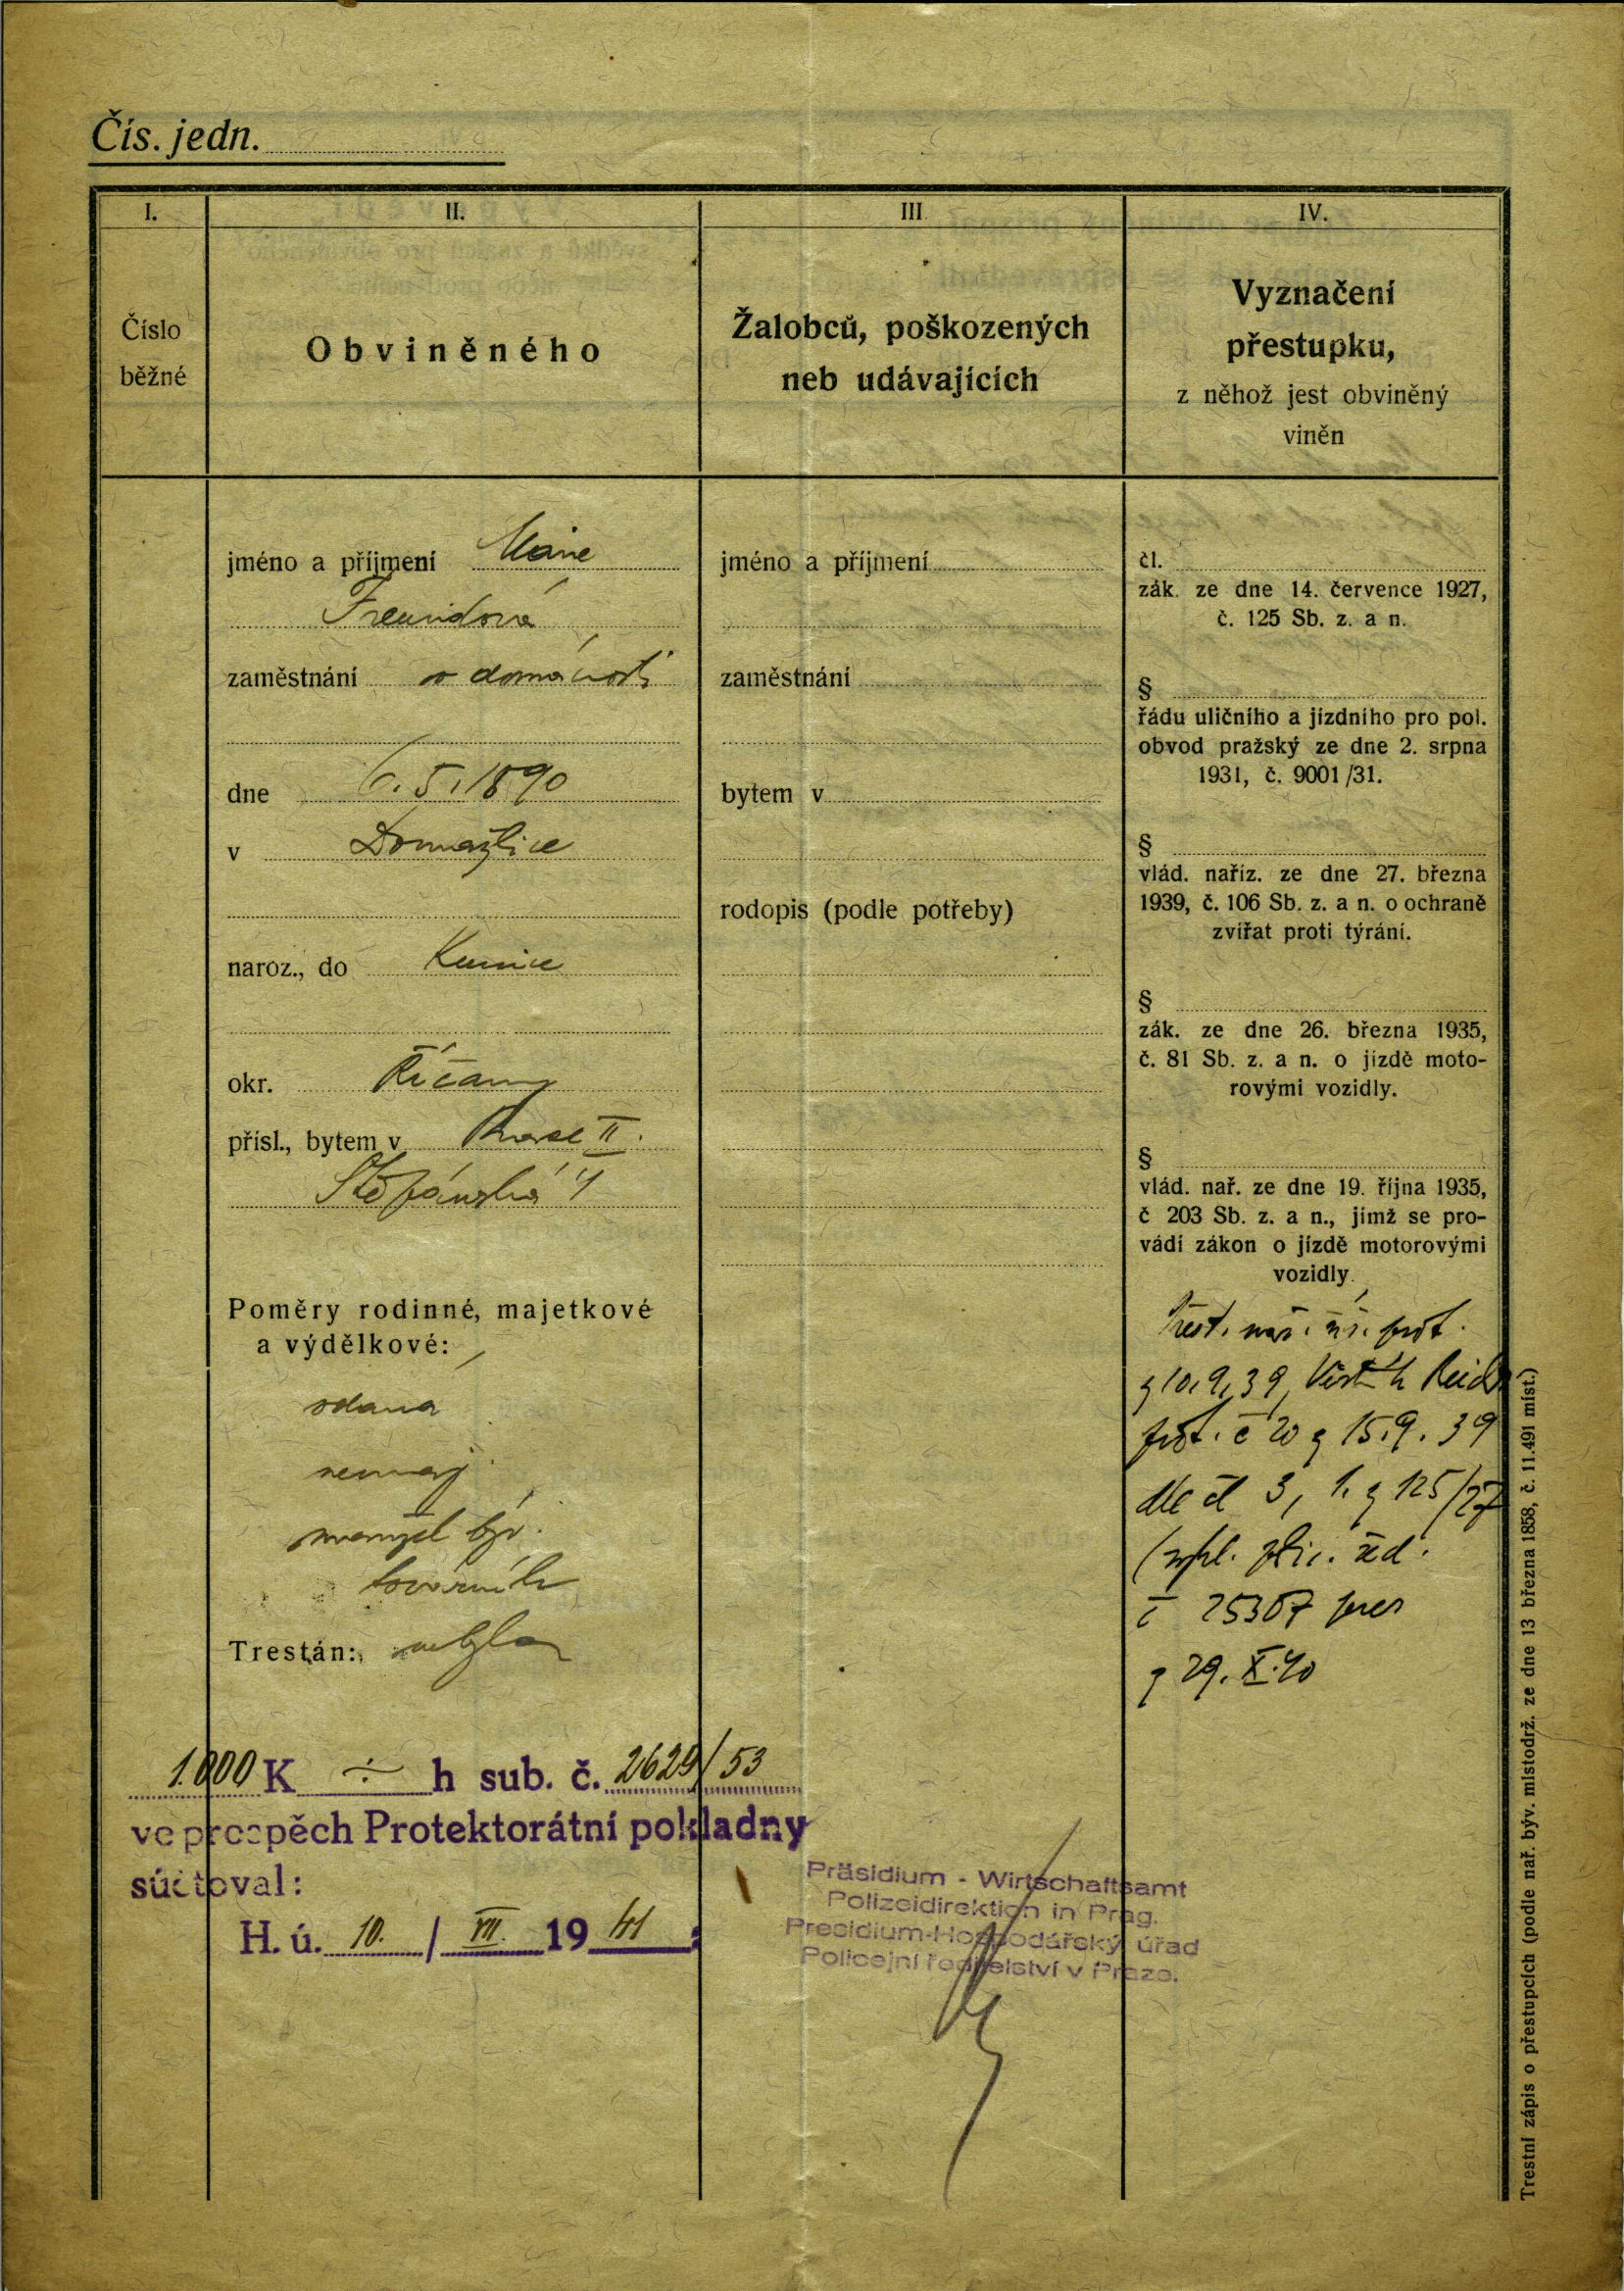 Čís. jedn.
I.
II.
III
IV.
Číslo
běžné
Obviněného
Žalobců, poškozených
neb udávajících
Vyznačení
přestupku,
z něhož jest obviněný
viněn
jméno a příjmení Marie
Freundová
zaměstnání v domácnosti
dne 6.5.1890
v Domažlice
naroz., do Kunice
okr. Říčany
přísl., bytem v Praze II.
Štěpánská
Poměry rodinné, majetkové
a výdělkové:
vdaná
nemaj.
manžel býv.
továrník
Trestán:
jméno a příjmení
zaměstnání
bytem v
rodopis (podle potřeby)
čl.
zák. ze dne 14. července 1927,
č. 125 Sb. z. a n.
§
řádu uličního a jízdního pro pol.
obvod pražský ze dne 2. srpna
1931, č. 9001/31.
§
vlád. naříz. ze dne 27. března
1939, č. 106 Sb. z. a n. o ochraně
zvířat proti týrání.
§
zák. ze dne 26. března 1935,
č. 81 Sb. z. a n. o jízdě moto-
rovými vozidly.
§
vlád. nař. ze dne 19. října 1935,
č 203 Sb. z. a n., jímž se pro-
vádí zákon o jízdě motorovými
vozidly.
nař. prot.
z 10.9.39
prot. č 20 z 15.9.39
dle čl 3, 1. z 125/27
č 25307 pres
z 29.X.40
1.000 K ÷ h sub. č. 2629/53
ve prospěch Protektorátní pokladny
súčtoval:
H. ú. 10. / VII. 19 41
Präsidium - Wirtschaftsamt
Polizeidirektion in Prag.
Presidium-Hospodářský úřad
Policejní ředitelství v Praze.
Trestní zápis o přestupcích (podle nař. býv. místodrž. ze dne 13 března 1858, č. 11.491 míst.)